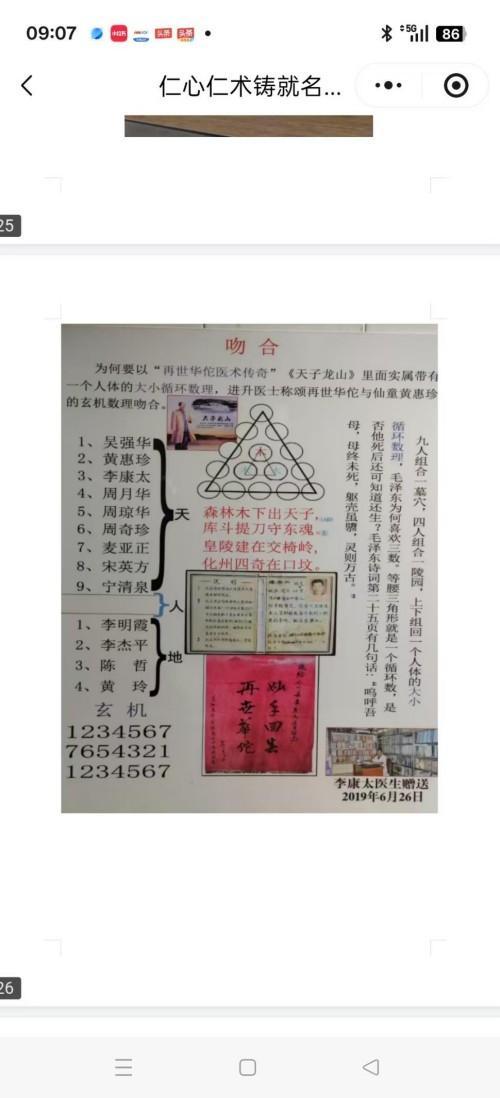 09:07
5G
86
仁心仁术铸就名...
25
吻 合
为何要以“再世华佗医术传奇”《天子龙山》里面实属带有
一个人体的大小循环数理，进升医士称颂再世华佗与仙童黄惠珍
的玄机数理吻合。
天子龙山
1、吴强华
2、黄惠珍
3、李康太
4、周月华
5、周琼华
6、周奇珍
7、麦亚正
8、宋英方
9、宁清泉
天
人
1、李明霞
2、李杰平
3、陈 哲
4、黄 玲
地
玄 机
1234567
7654321
1234567
木
森林木下出天子，
库斗提刀守东魂。
皇陵建在交椅岭，
化州四奇在口坟。
妙手回春
再世华佗
九人组合一墓穴，四人组合一陵园，上下组回一个人体的大小
循环数理，毛泽东为何喜欢三数。等腰三角形就是一个循环数，是
否他死后还可知道还生？毛泽东诗词第二十五页有几句话：“呜呼吾
母，母终未死，躯壳虽隳，灵则万古。”
李康太医生赠送
2019年6月26日
26